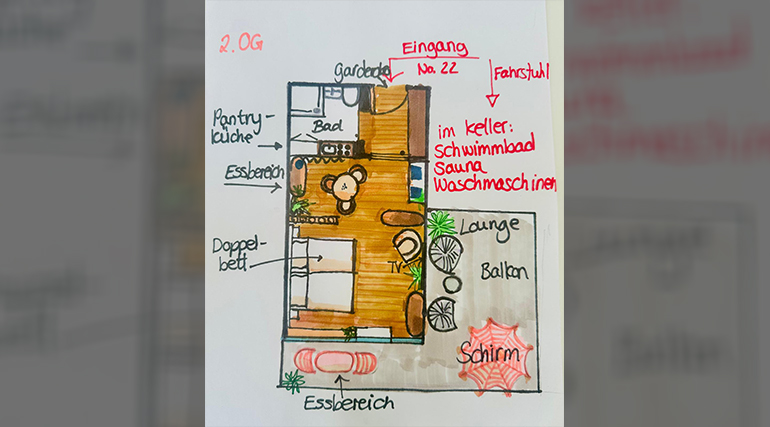 2.OG
Eingang
No. 22
Garderobe
Fahrstuhl
Pantry-
küche
Bad
im Keller:
Schwimmbad
Sauna
Waschmaschinen
Essbereich
Lounge
Doppel-
bett
TV
Balkon
Schirm
Essbereich